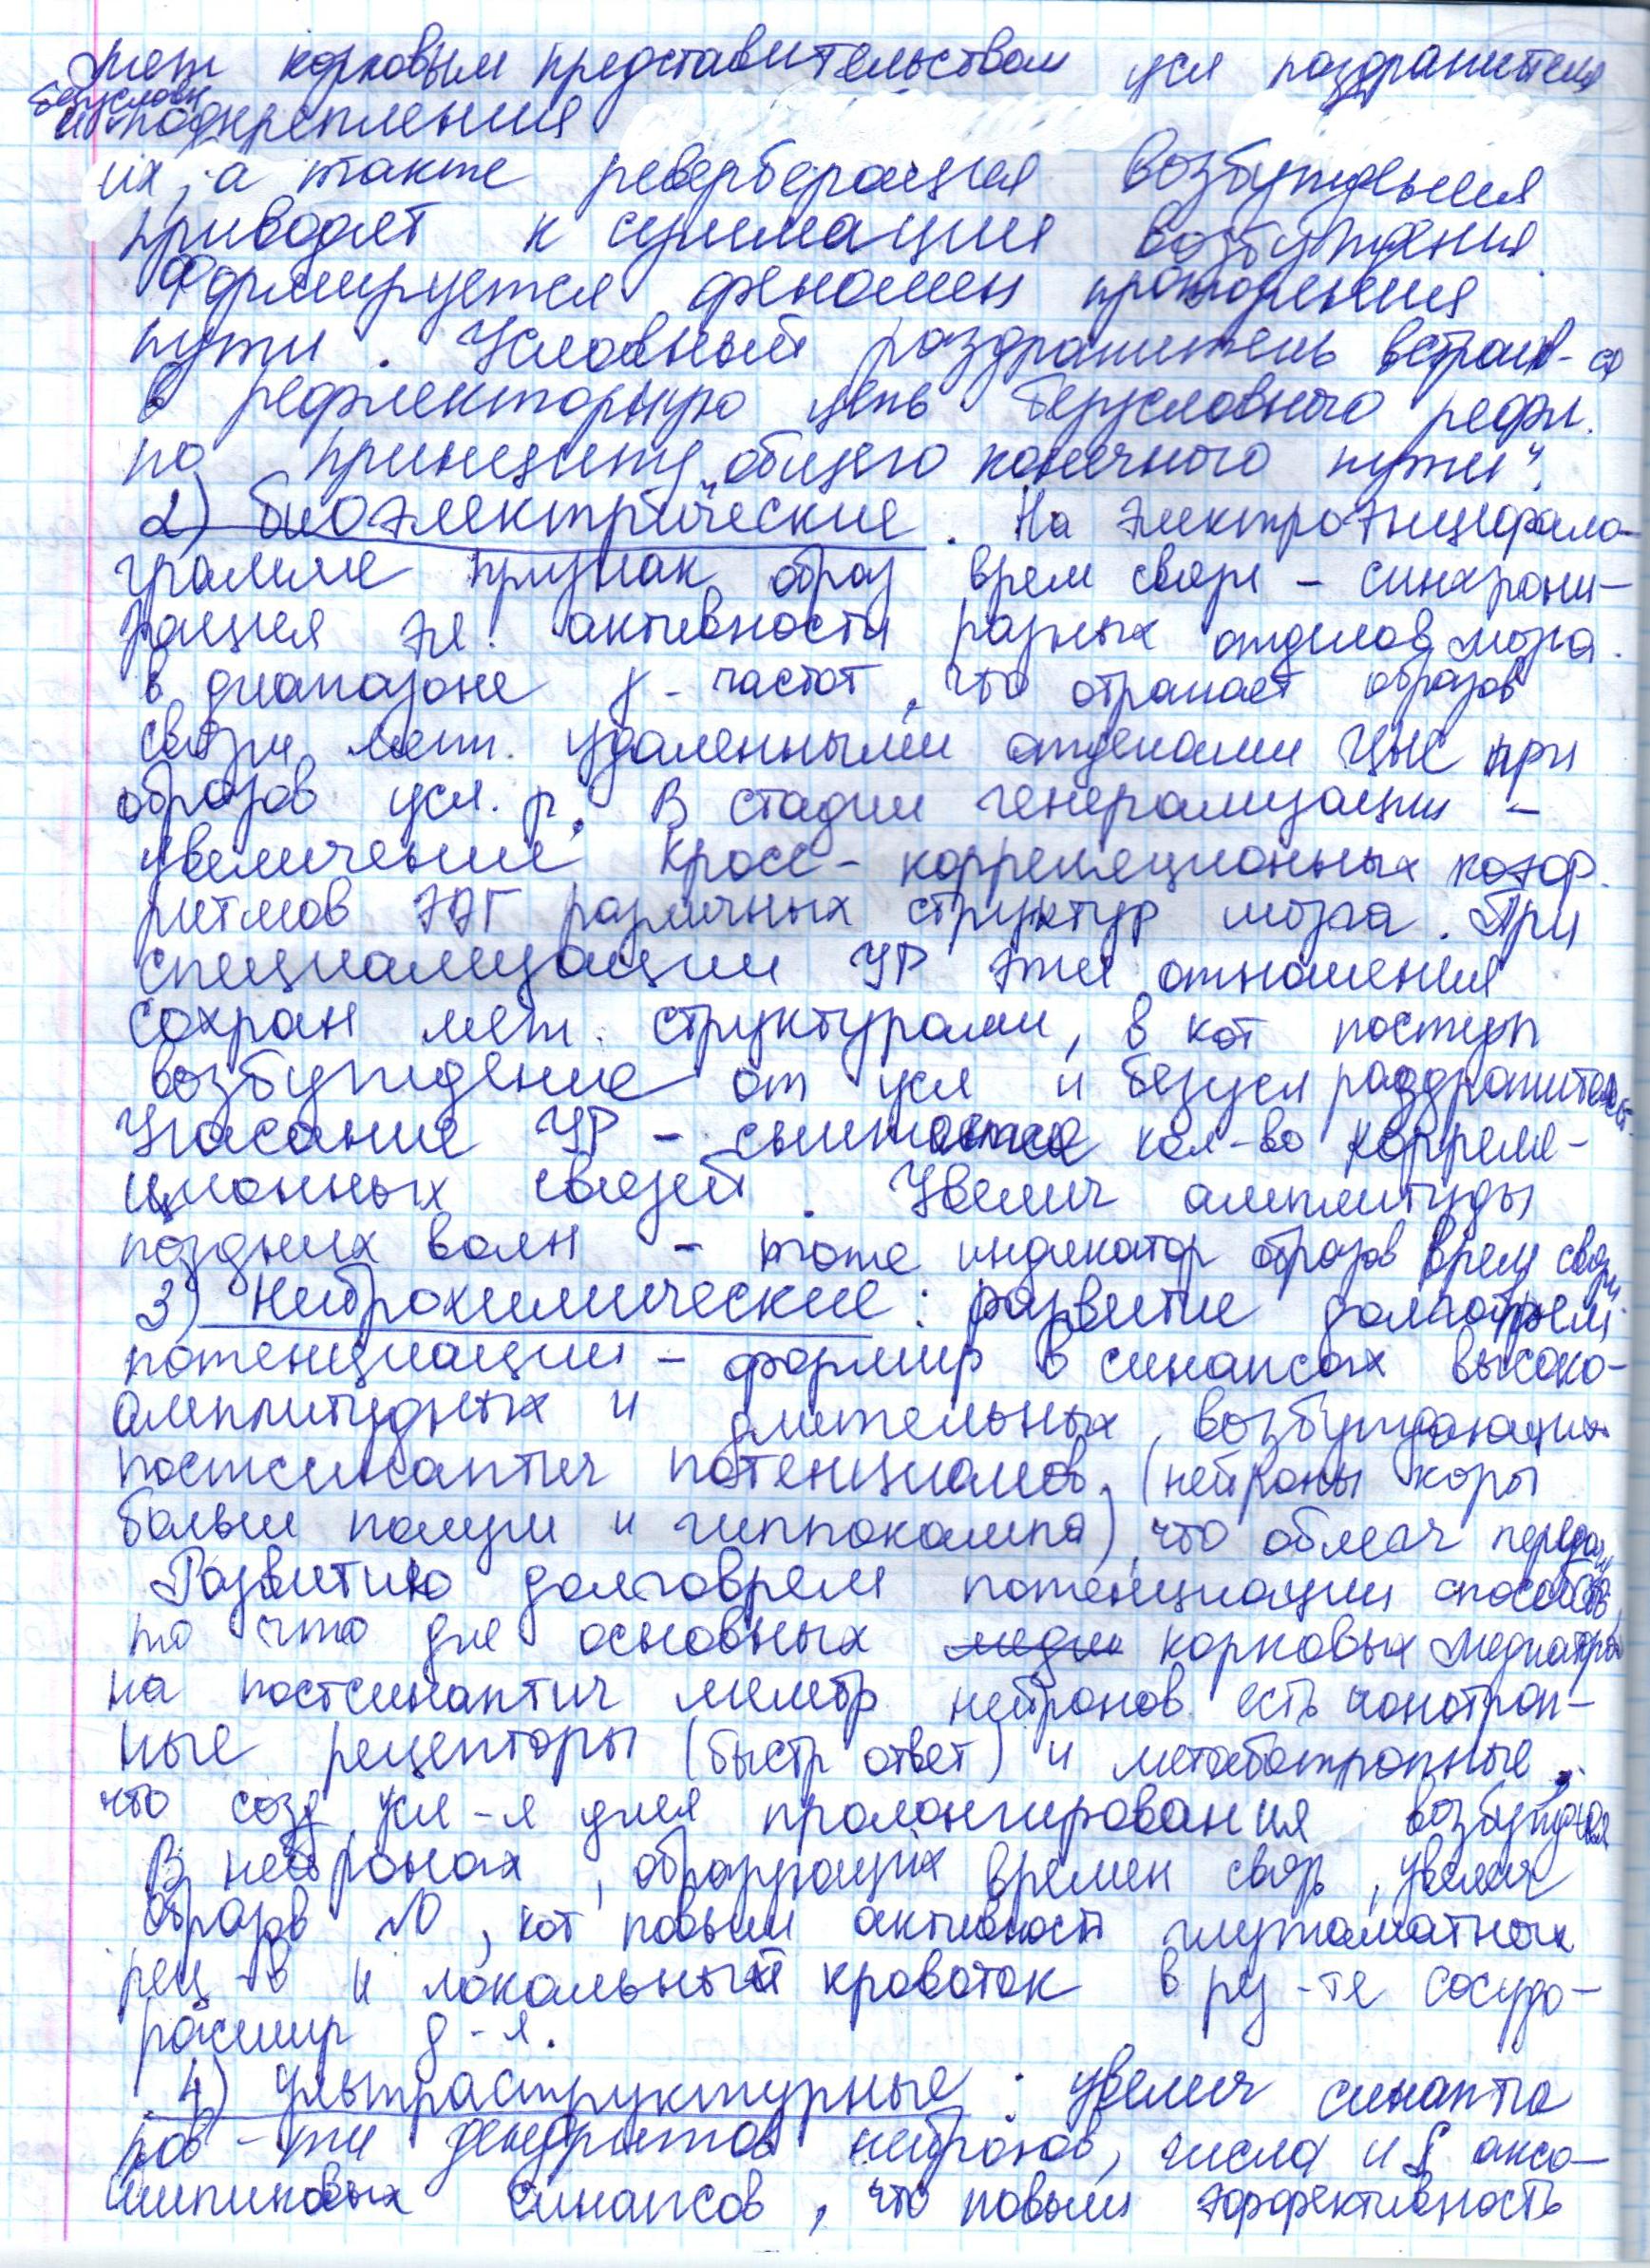 меж корковым представительством усл раздражителя
безусловн
и подкрепления
их, а также реверберация возбуждения
приводят к суммации возбуждения
Формируется феномен проторения
пути. Условный раздражитель встраив-ся
в рефлекторную цепь безусловного рефл.
по принципу „общего конечного пути“.
2) биоэлектрические. На электроэнцефало-
грамме признак образ врем связи – синхрони-
зация эл. активности разных отделов мозга.
в диапазоне γ-частот, что отражает образов
связи меж. удаленными отделами ЦНС при
образов усл. р. В стадии генерализации –
увеличение кросс-корреляционных коэф.
ритмов ЭЭГ различных структур мозга. При
специализации УР эти отношения
сохран меж. структурами, в кот поступ
возбуждение от усл и безусл раздражителей.
Угасание УР – снижается кол-во корреля-
ционных связей. Увелич амплитуды
поздних волн – тоже индикатор образов врем связи
3) Нейрохимические: развитие долговрем
потенциации – формир в синапсах высоко-
амплитудных и длительных, возбуждающих
постсинаптич потенциалов, (нейроны коры
больш полуш и гиппокампа), что облегч передачу
Развитию долговрем потенциации способств
то что для основных меди корковых медиаторов
на постсинаптич мембр нейронов есть ионотроп-
ные рецепторы (быстр ответ) и метаботропные,
что созд усл-я для пролонгирования возбуждения
В нейронах, образующих времен связь, увелич
образов NO, кот повыш активность глутаматных
рец-в и локальный кровоток в рез-те сосудо-
расшир д-я.
4) Ультраструктурные: увелич синаптич
пов-ти дендритов нейронов, числа и S аксо-
шипиковых синапсов, что повыш эффективность